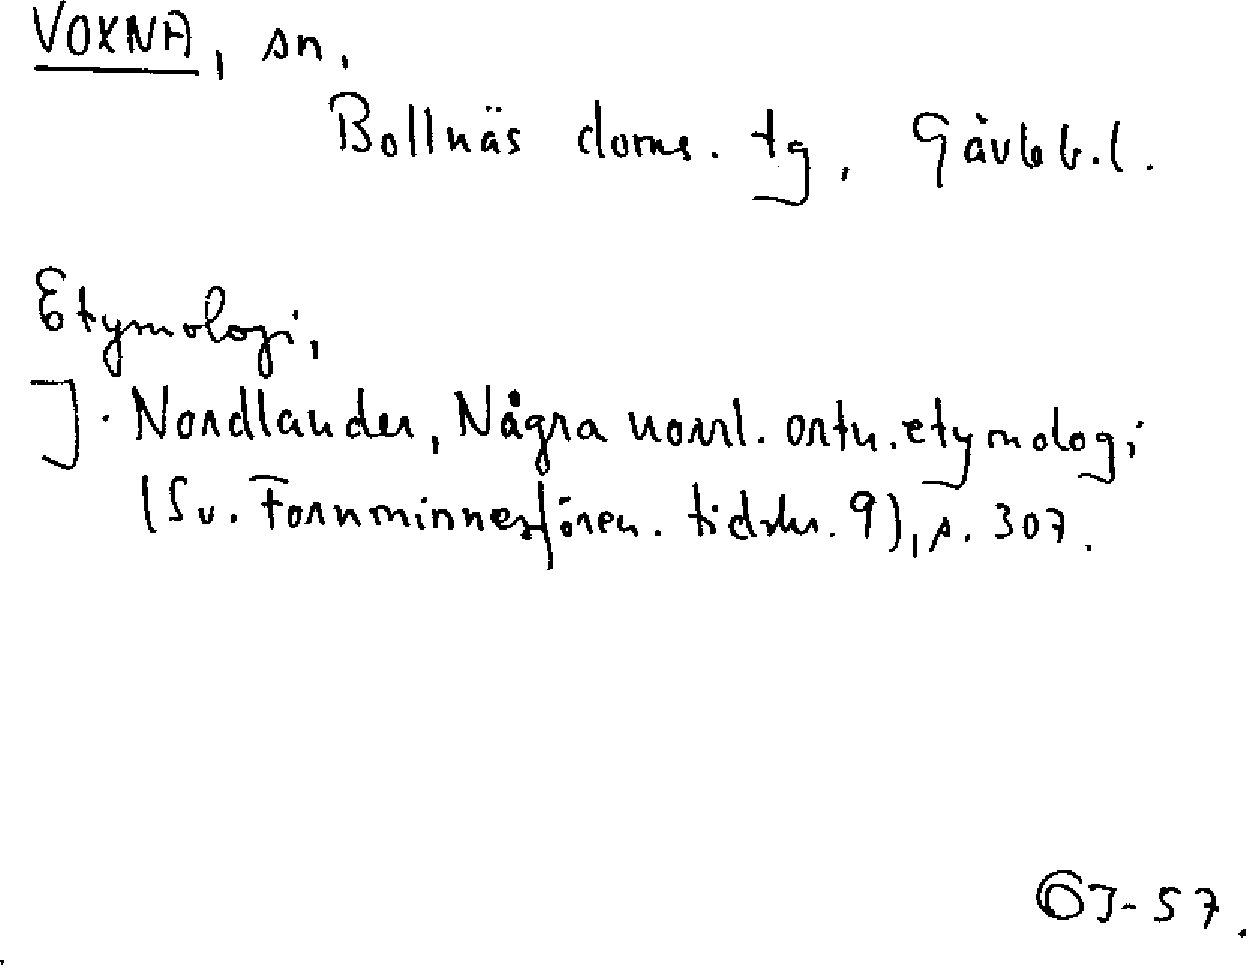 VOXNA, sn.
Bollnäs doms. tg, Gävleb. l.
Etymologi,
J. Nordlander, Några norrl. ortn. etymologi
(Sv. Fornminnesfören. tidskr. 9), s. 307.
GJ-57.